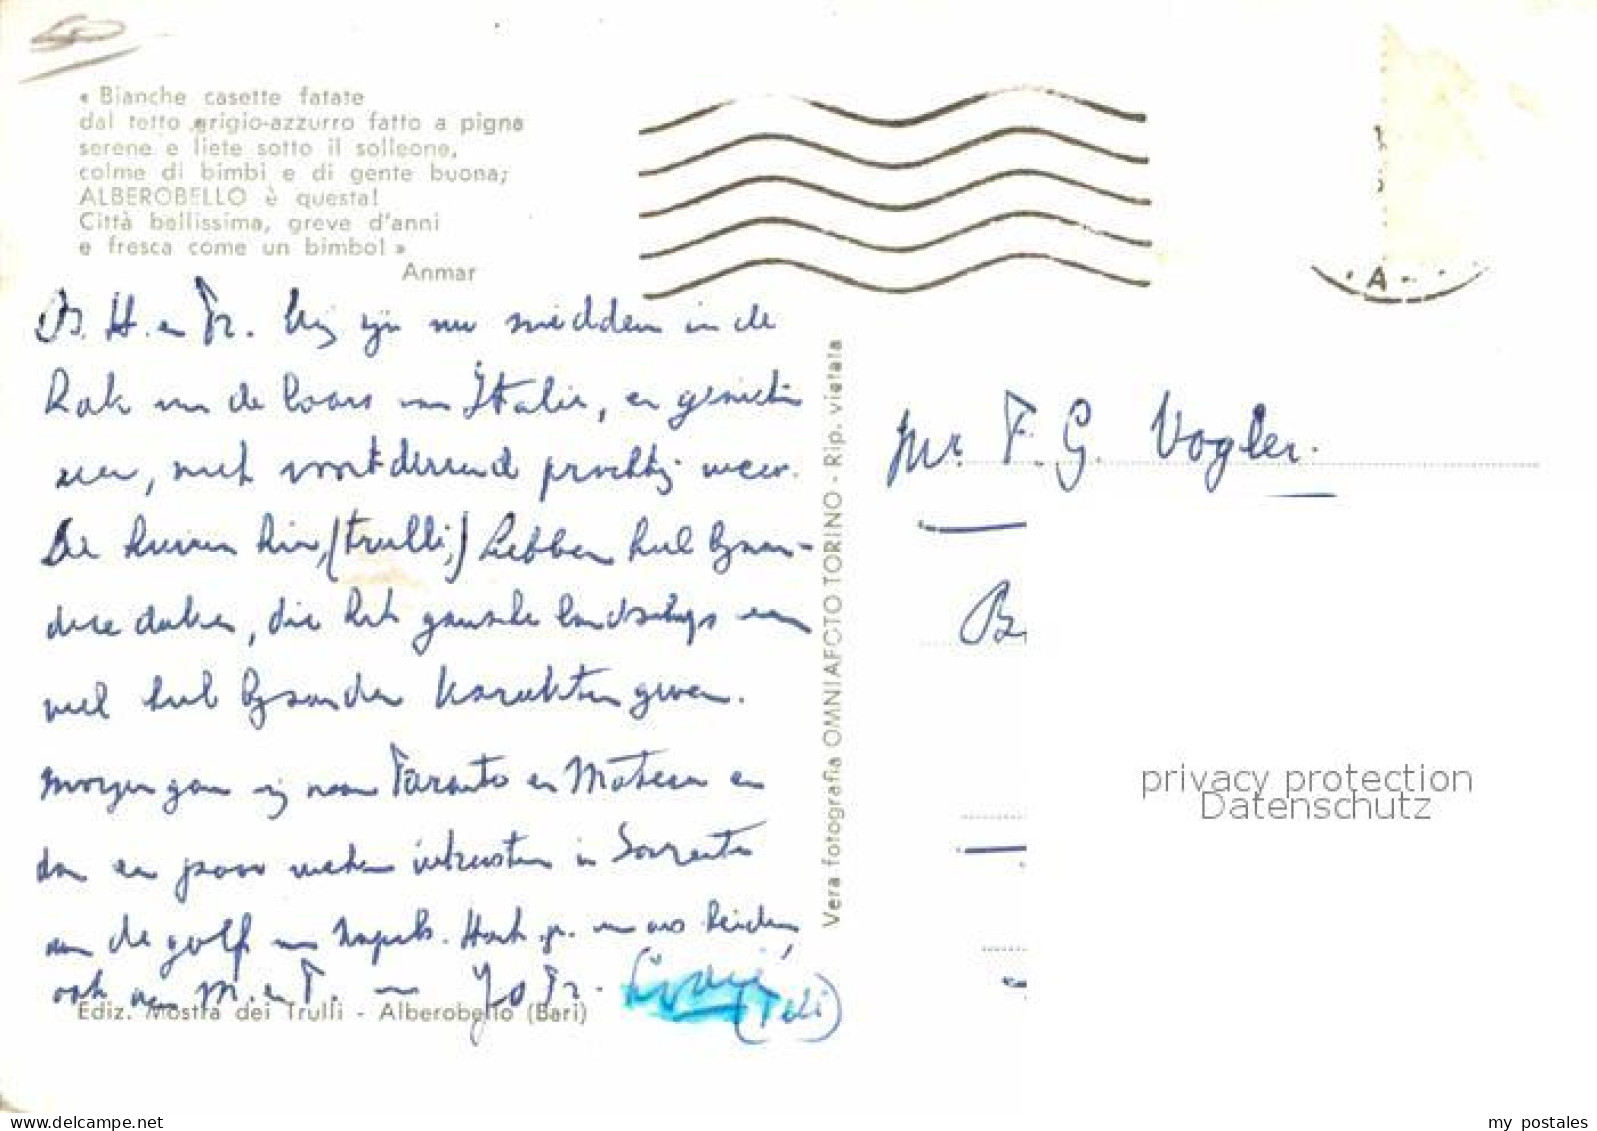 « Bianche casette fatate
dal tetto grigio-azzurro fatto a pigna
serene e liete sotto il solleone,
colme di bimbi e di gente buona;
ALBEROBELLO è questa!
Città bellissima, greve d'anni
e fresca come un bimbo! »
Anmar
B. H. en Fr. Wij zijn nu midden in de
hak van de laars van Italie, en genieten
zeer, met voortdurend prachtig weer.
De huizen hier, (trulli,) hebben heel bijzon-
dere daken, die het gansche landschap een
heel bijzonder karakter geven.
Morgen gaan wij naar Taranto en Matera en
dan een paar weken uitrusten in Sorrento
aan de golf van Napels. Hart. gr. van ons beiden,
ook aan M. en T. Jo Fr.
(Teli)
Ediz. Mostra dei Trulli - Alberobello (Bari)
Vera fotografia OMNIAFOTO TORINO - Rip. vietata
A
Mr. F. G. Vogler.
privacy protection
Datenschutz
www.delcampe.net
my_postales